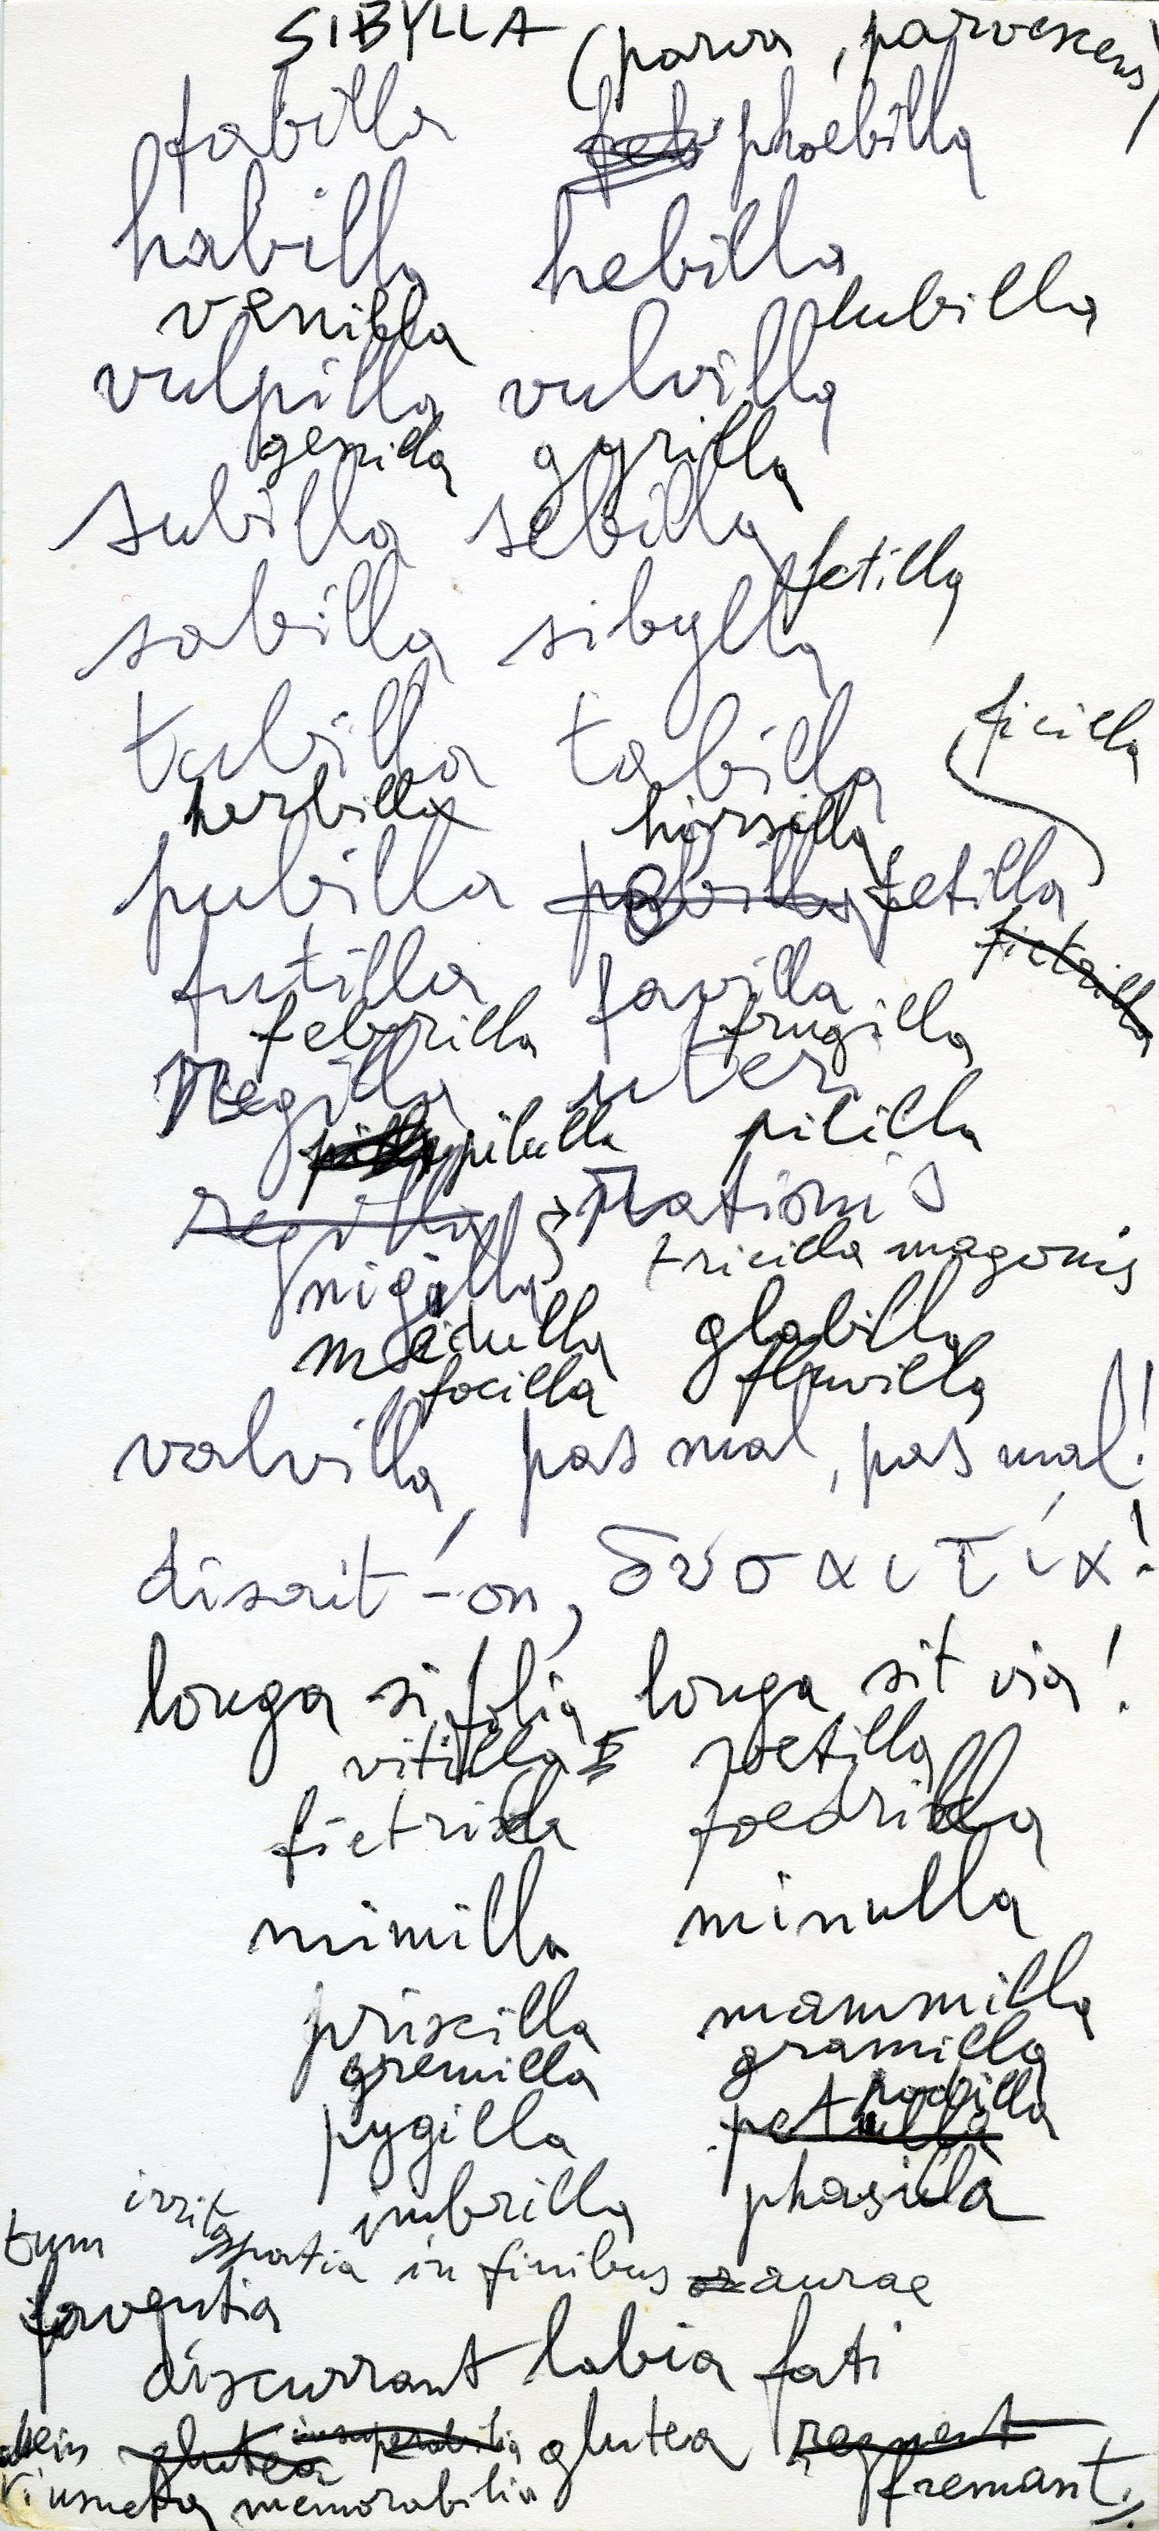 SIBYLLA (parva, parvescens)
fabilla phoebilla
habilla hebilla
venilla lubilla
vulpilla vulvilla
genilla gyrilla
subilla sebilla
fetilla
sabilla sibylla
ficilla
tubilla tabilla
herbilla hirsilla
pubilla pabilla fetilla
fictrilla
futilla favilla
febrilla frugilla
Negilla uteri
pilulla pililla
regilla nationis
nigilla tricilla magonis
medulla glabilla
focilla fluvilla
valvilla, pas mal, pas mal!
disait-on, δυσαιτία!
longa si folia longa sit via!
vitilla roetilla
fietrilla foedrilla
mimilla minulla
priscilla mammilla
gremilla gramilla
podilla
pygilla petulla
imbrilla phasilla
tum irrita spatia in finibus aurae
faventia
discurrant labia fati
dein glutea insuperabilia glutea regnent
memorabilia fremant!